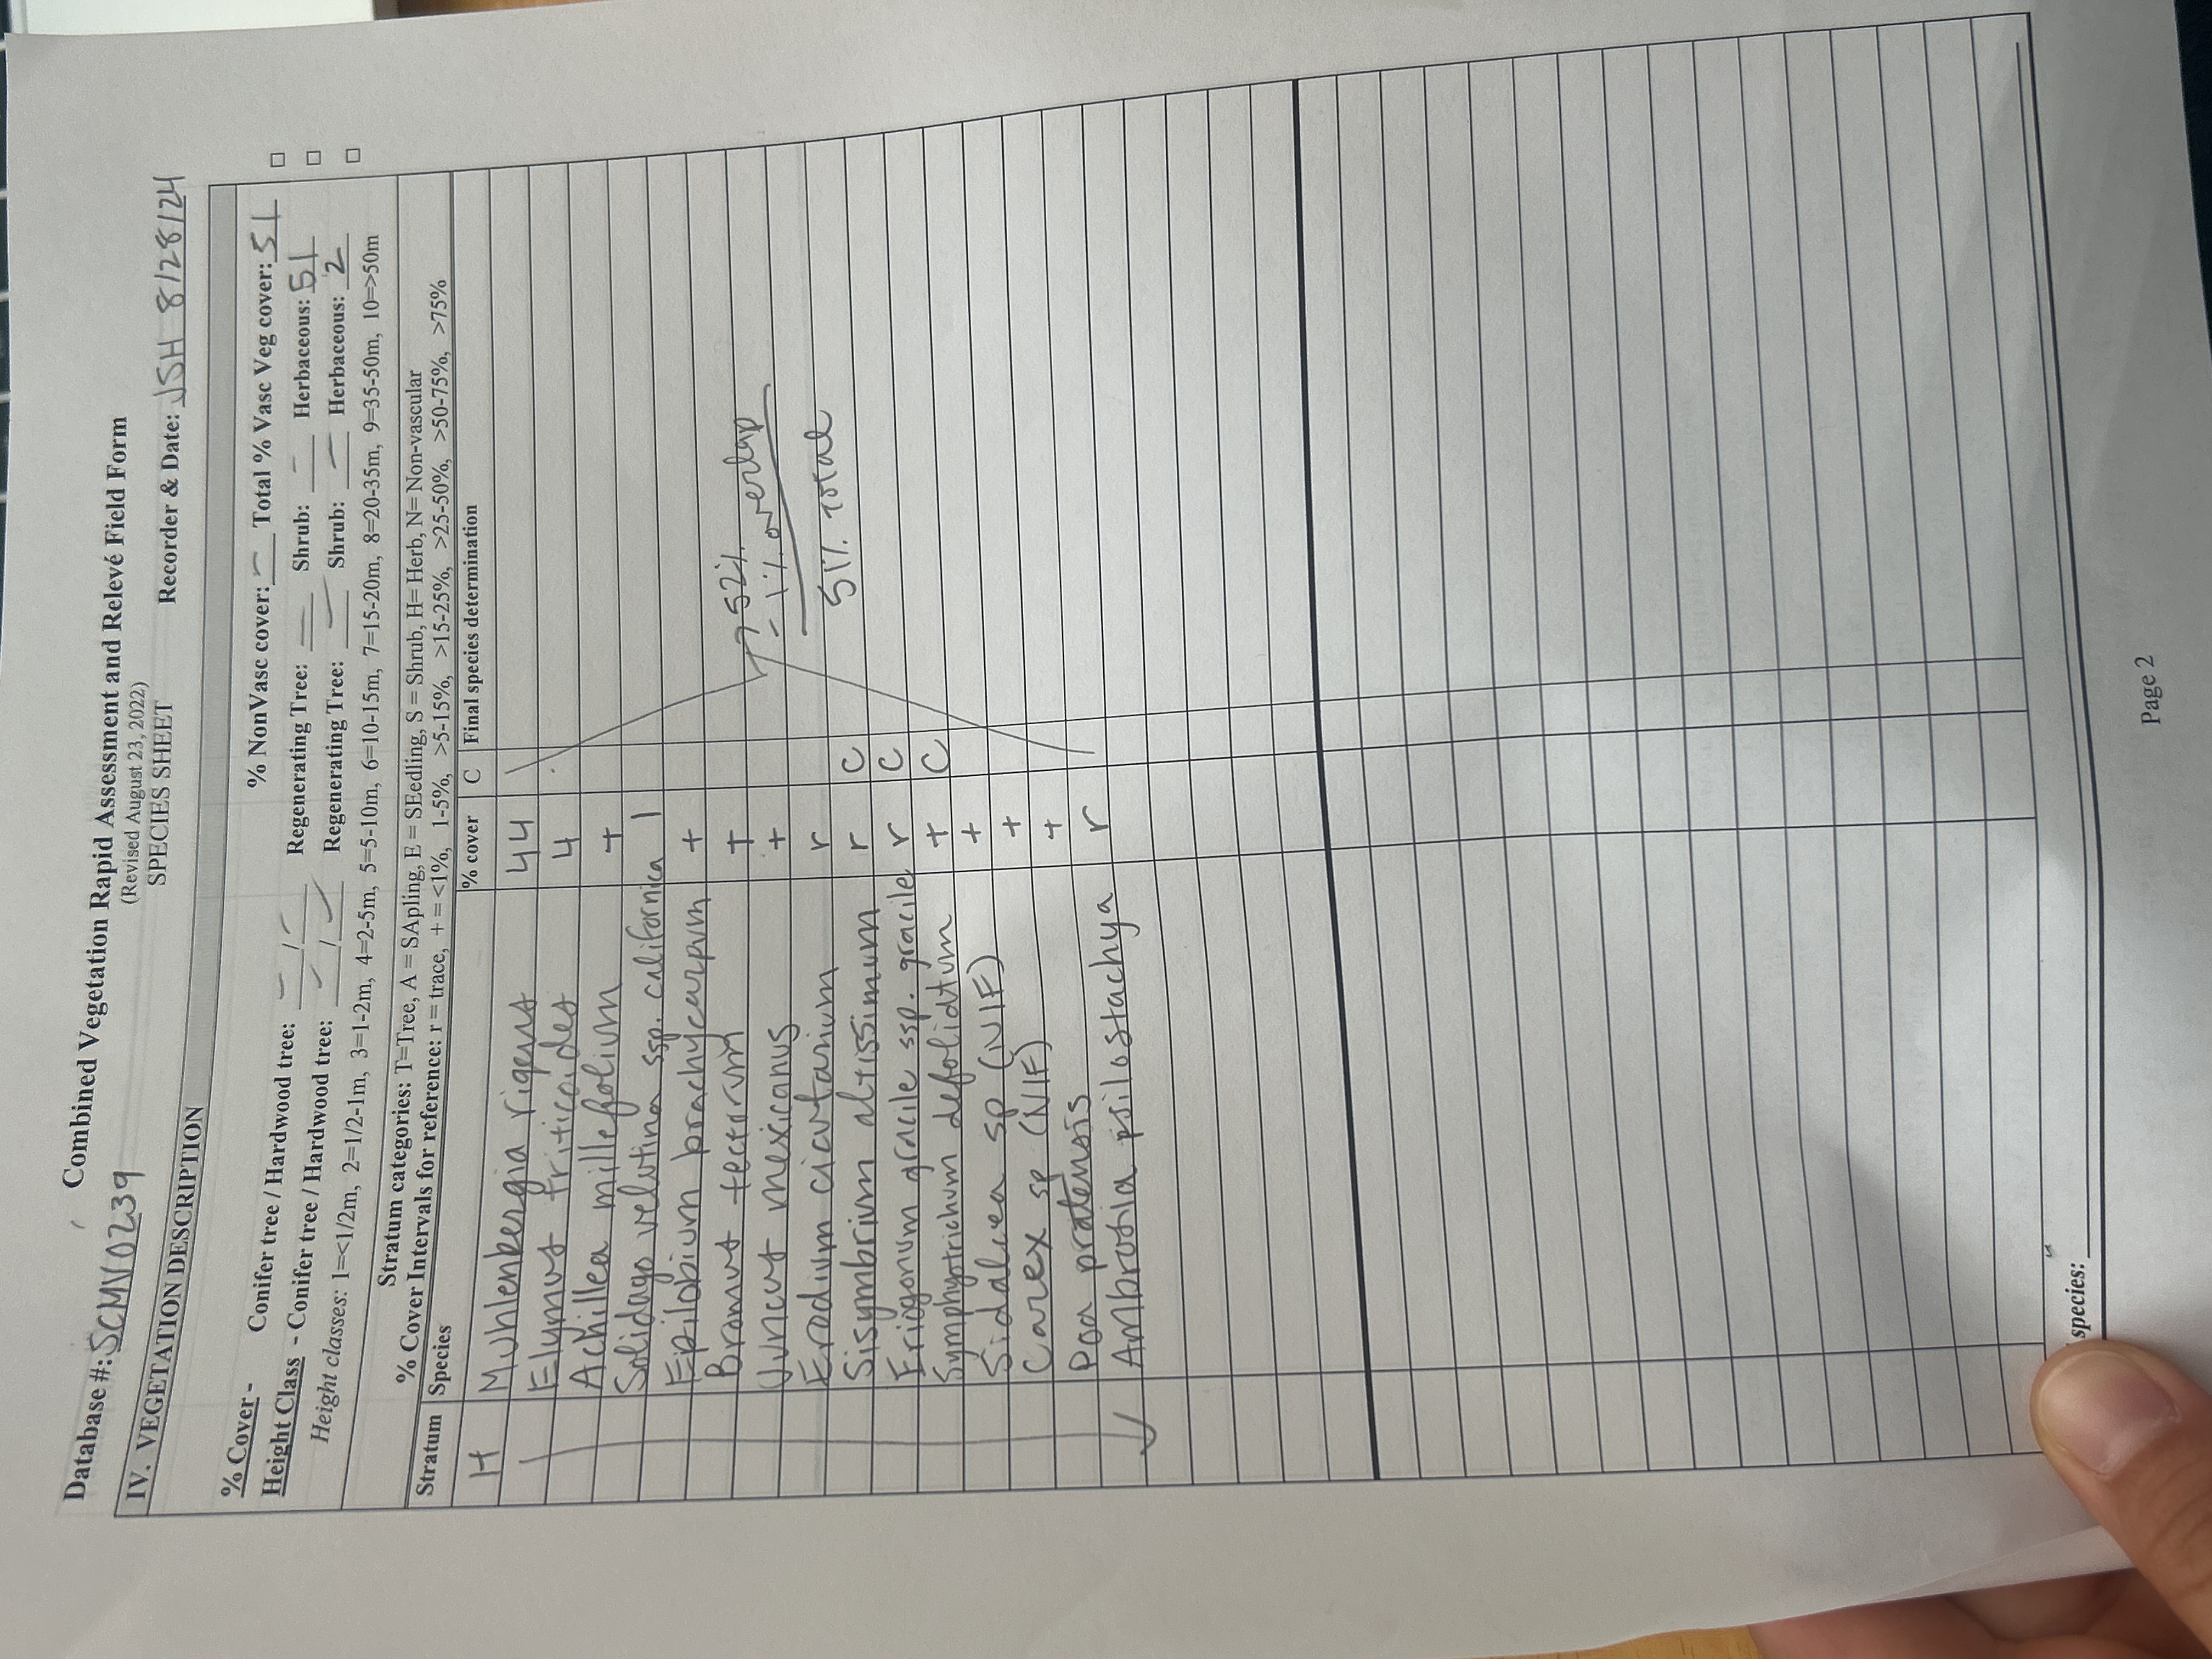 Combined Vegetation Rapid Assessment and Relevé Field Form
(Revised August 23, 2022)
SPECIES SHEET
Database #: SCMV0239 Recorder & Date: JSH 8/28/24
IV. VEGETATION DESCRIPTION
% NonVasc cover: — Total % Vasc Veg cover: 51
% Cover - Conifer tree / Hardwood tree: — / — Regenerating Tree: — Shrub: — Herbaceous: 51
Height Class - Conifer tree / Hardwood tree: — / — Regenerating Tree: — Shrub: — Herbaceous: 2
Height classes: 1=<1/2m, 2=1/2-1m, 3=1-2m, 4=2-5m, 5=5-10m, 6=10-15m, 7=15-20m, 8=20-35m, 9=35-50m, 10=>50m
Stratum categories: T=Tree, A = SApling, E = SEedling, S = Shrub, H= Herb, N= Non-vascular
% Cover Intervals for reference: r = trace, + = <1%, 1-5%, >5-15%, >15-25%, >25-50%, >50-75%, >75%
Stratum Species % cover C Final species determination
H Muhlenbergia rigens 44
Elymus triticoides 4
Achillea millefolium +
Solidago velutina ssp. californica 1
Epilobium brachycarpum +
Bromus tectorum +
Juncus mexicanus +
Erodium cicutarium r
Sisymbrium altissimum r C
Eriogonum gracile ssp. gracile r C
Symphyotrichum defoliatum + C
Sidalcea sp (NIF) +
Carex sp (NIF) +
Poa pratensis +
Ambrosia psilostachya r
52%
- 1% overlap
51% total
species:
Page 2